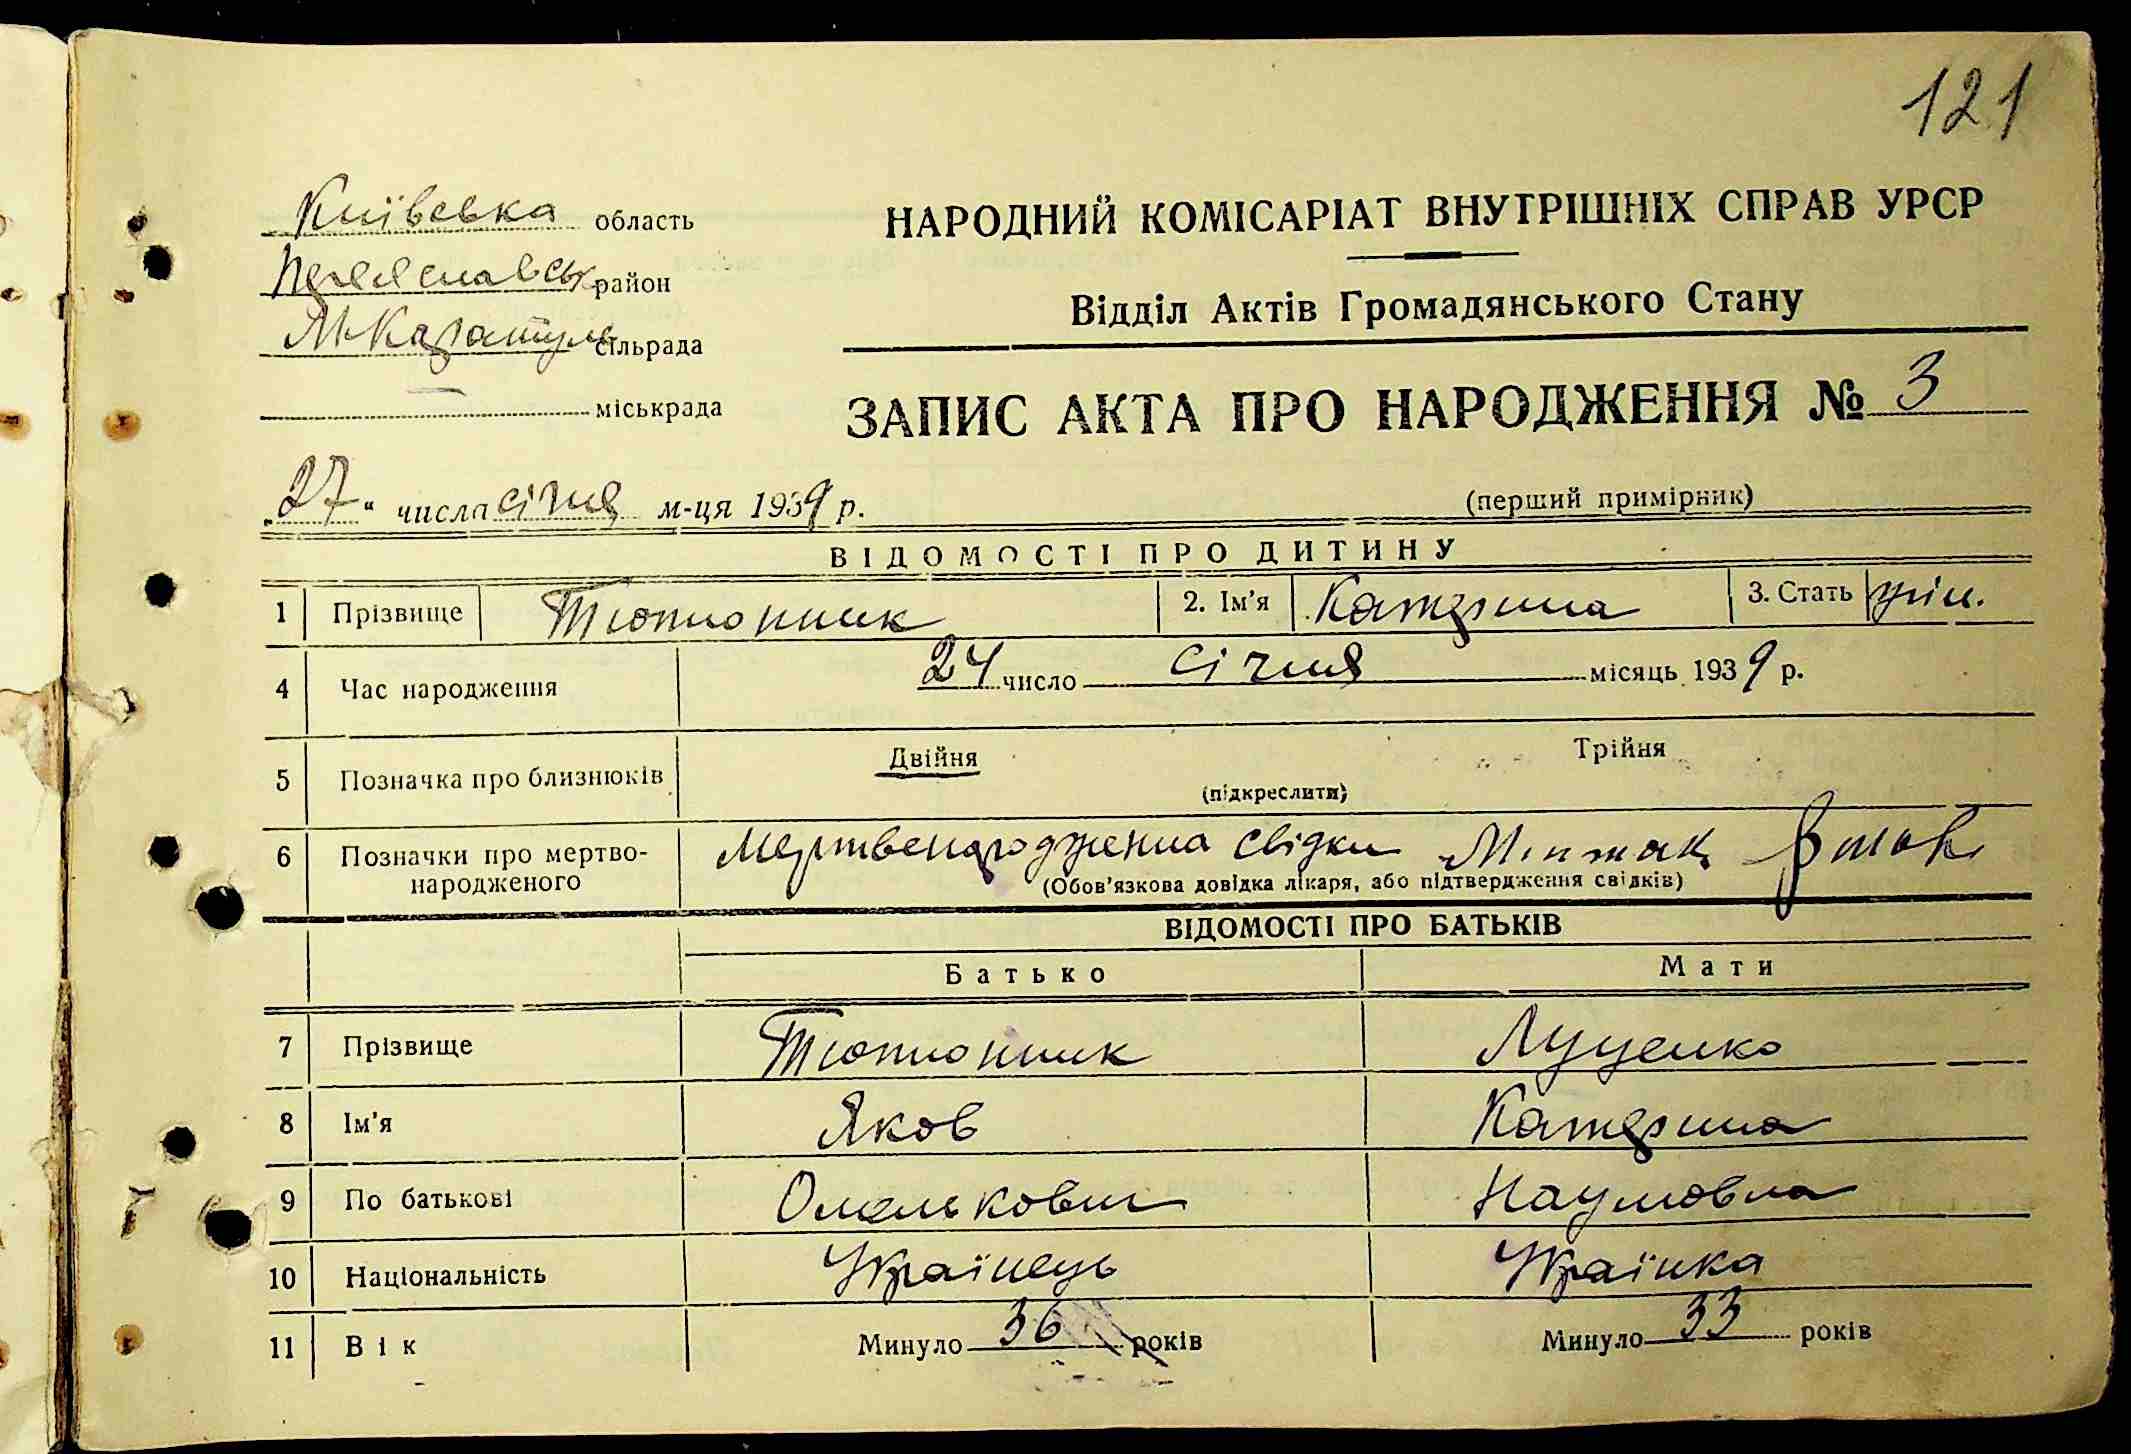 121
Київська область
Переяславськ район
М-Каратул сільрада
— міськрада
НАРОДНИЙ КОМІСАРІАТ ВНУТРІШНІХ СПРАВ УРСР
Відділ Актів Громадянського Стану
ЗАПИС АКТА ПРО НАРОДЖЕННЯ № 3
„27“ числа січня м-ця 1939 р.
(перший примірник)
ВІДОМОСТІ ПРО ДИТИНУ
1 Прізвище Тютюнник 2. Ім'я Катерина 3. Стать жін.
4 Час народження 24 число січня місяць 1939 р.
5 Позначка про близнюків Двійня Трійня
(підкреслити)
6 Позначки про мертвонародженого Мертвенароджена свідки
(Обов'язкова довідка лікаря, або підтвердження свідків)
ВІДОМОСТІ ПРО БАТЬКІВ
Батько Мати
7 Прізвище Тютюнник Луценко
8 Ім'я Яков Катерина
9 По батькові Омелькович Наумовна
10 Національність Українець Українка
11 Вік Минуло 36 років Минуло 33 років